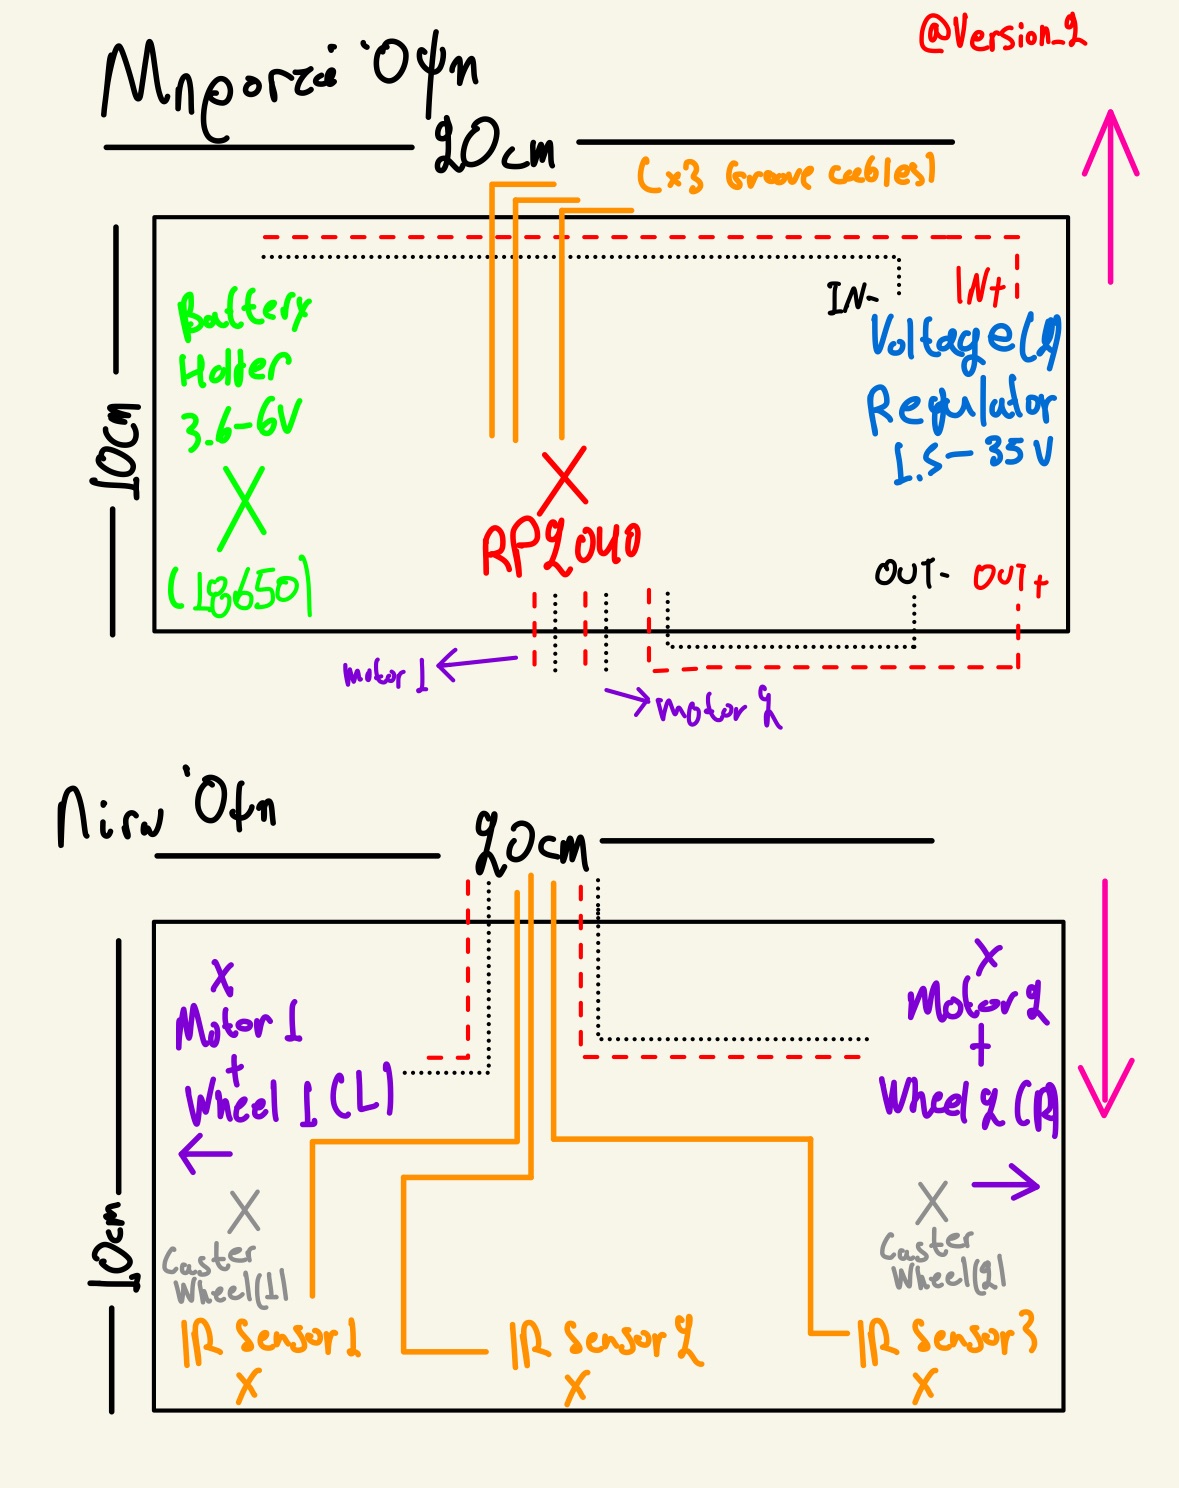 @Version_2
Μπροστά Όψη
20cm
(x3 Groove cables)
10cm
IN- IN+
Battery
Holter
3.6-6V
X
(18650)
Voltage(1)
Regulator
1.5-35V
X
RP2040
OUT- OUT+
motor 1
motor 2
Πίσω Όψη
20cm
10cm
X
Motor 1
+
Wheel 1 (L)
X
Motor 2
+
Wheel 2 (R)
X
Caster
Wheel(1)
X
Caster
Wheel(2)
IR Sensor 1
X
IR Sensor 2
X
IR Sensor 3
X